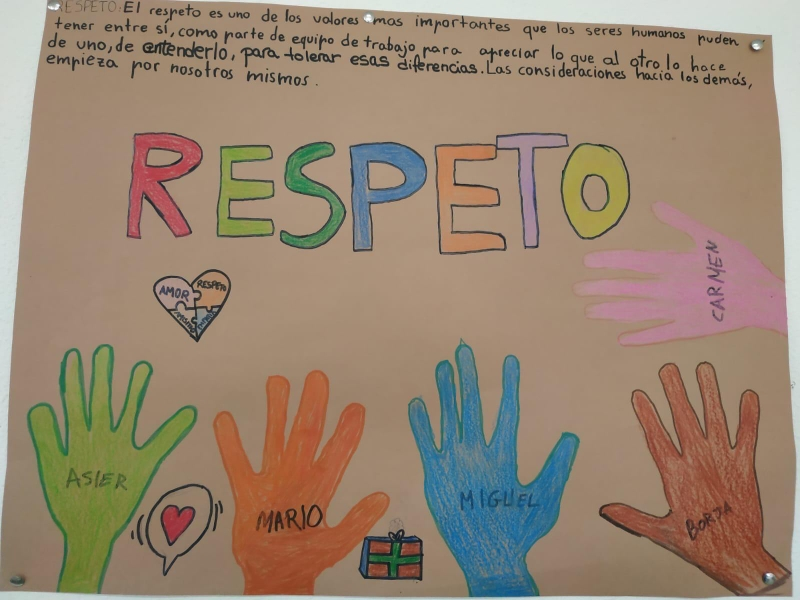 RESPETO: El respeto es uno de los valores mas importantes que los seres humanos puden
tener entre sí, como parte de equipo de trabajo para apreciar lo que al otro lo hace
de uno, de entenderlo, para tolerar esas diferencias. Las consideraciones hacia los demás,
empieza por nosotros mismos.
RESPETO
CARMEN
AMOR
RESPETO
ASIER
MARIO
MIGUEL
BORJA